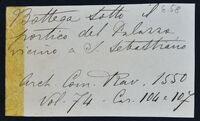 658
Bottega sotto il
portico del Palazzo
vicino a S. Sebastiano
Arch. Com. Rav. 1550
Vol. 74 - Car. 104 e 107